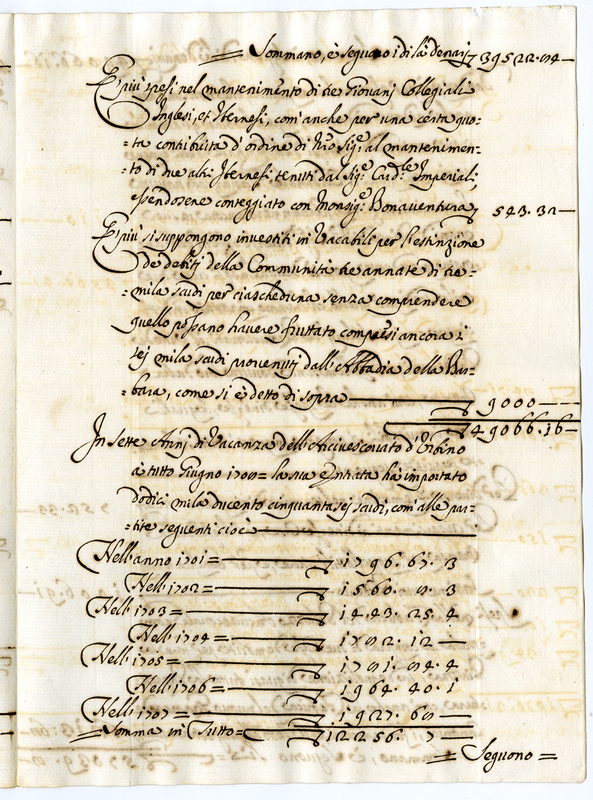 Sommano, è seguono i di là denari ▽ 39522.84—
E più spesi nel mantenimento di tre Giovani Collegiali
Inglesi, et Ibernesi, com'anche per una certa quo-
-ta contribuita d'ordine di Nro Sig.e al mantenimen-
-to di due altri Ibernesi, tenuti dal Sig.e Card.le Imperiali,
essendosene conteggiato con Monsig.e Bonaventura ▽ 543.32—
E più si suppongono investiti in Vacabili per l'estinzione
de debiti della Communità tre annate di tre-
-mila scudi per ciascheduna senza comprendere
quello possano havere fruttato compresi ancora i
sej mila scudi provenuti dall'Abbadia della Bar-
-bara, come si è detto di sopra — ▽ 9000 — —
▽ 49066.16—
In sette Anni di Vacanza dell'Arcivescovato d'Urbino
à tutto Giugno 1707= la sua entrata hà importato
dodici mila ducento cinquantasej scudi, com'alle par-
-tite seguenti cioè —
Nell'anno 1701= — ▽ 1796.67.3
Nell' 1702= — ▽ 1560. 8. 3
Nell' 1703= — ▽ 1443.25.4
Nell' 1704= — ▽ 1782.12 —
Nell' 1705= — ▽ 1781.84.4
Nell' 1706= — ▽ 1964.40.1
Nell' 1707= — ▽ 1927.68 —
= Somma in Tutto= ▽ 12256. 7 —
= Seguono =